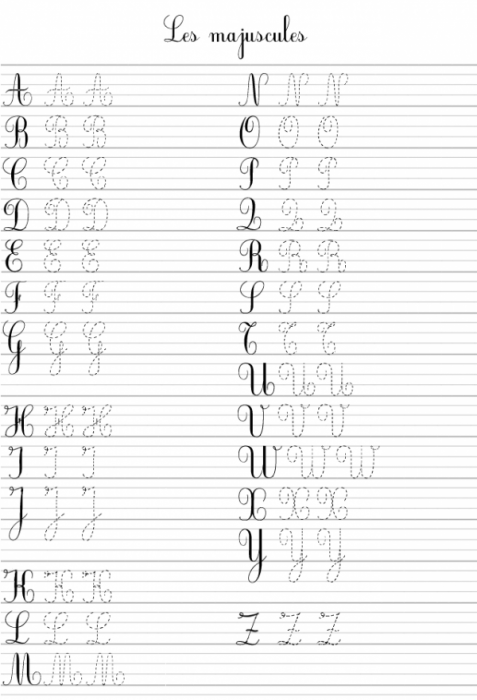 Les majuscules
A A A
B B B
C C C
D D D
E E E
F F F
G G G
H H H
I I I
J J J
K K K
L L L
M M M
N N N
O O O
P P P
Q Q Q
R R R
S S S
T T T
U U U
V V V
W W W
X X X
Y Y Y
Z Z Z